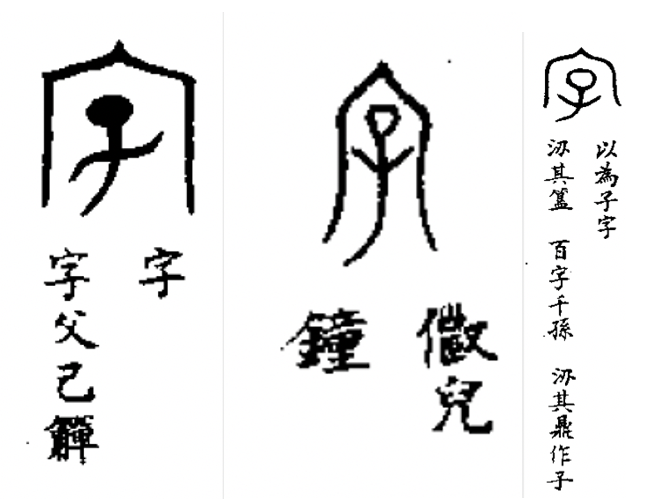 字
字
字父己觶
字
兒
鐘
字
以為子字
其簋 百字千孫 其鼎作子